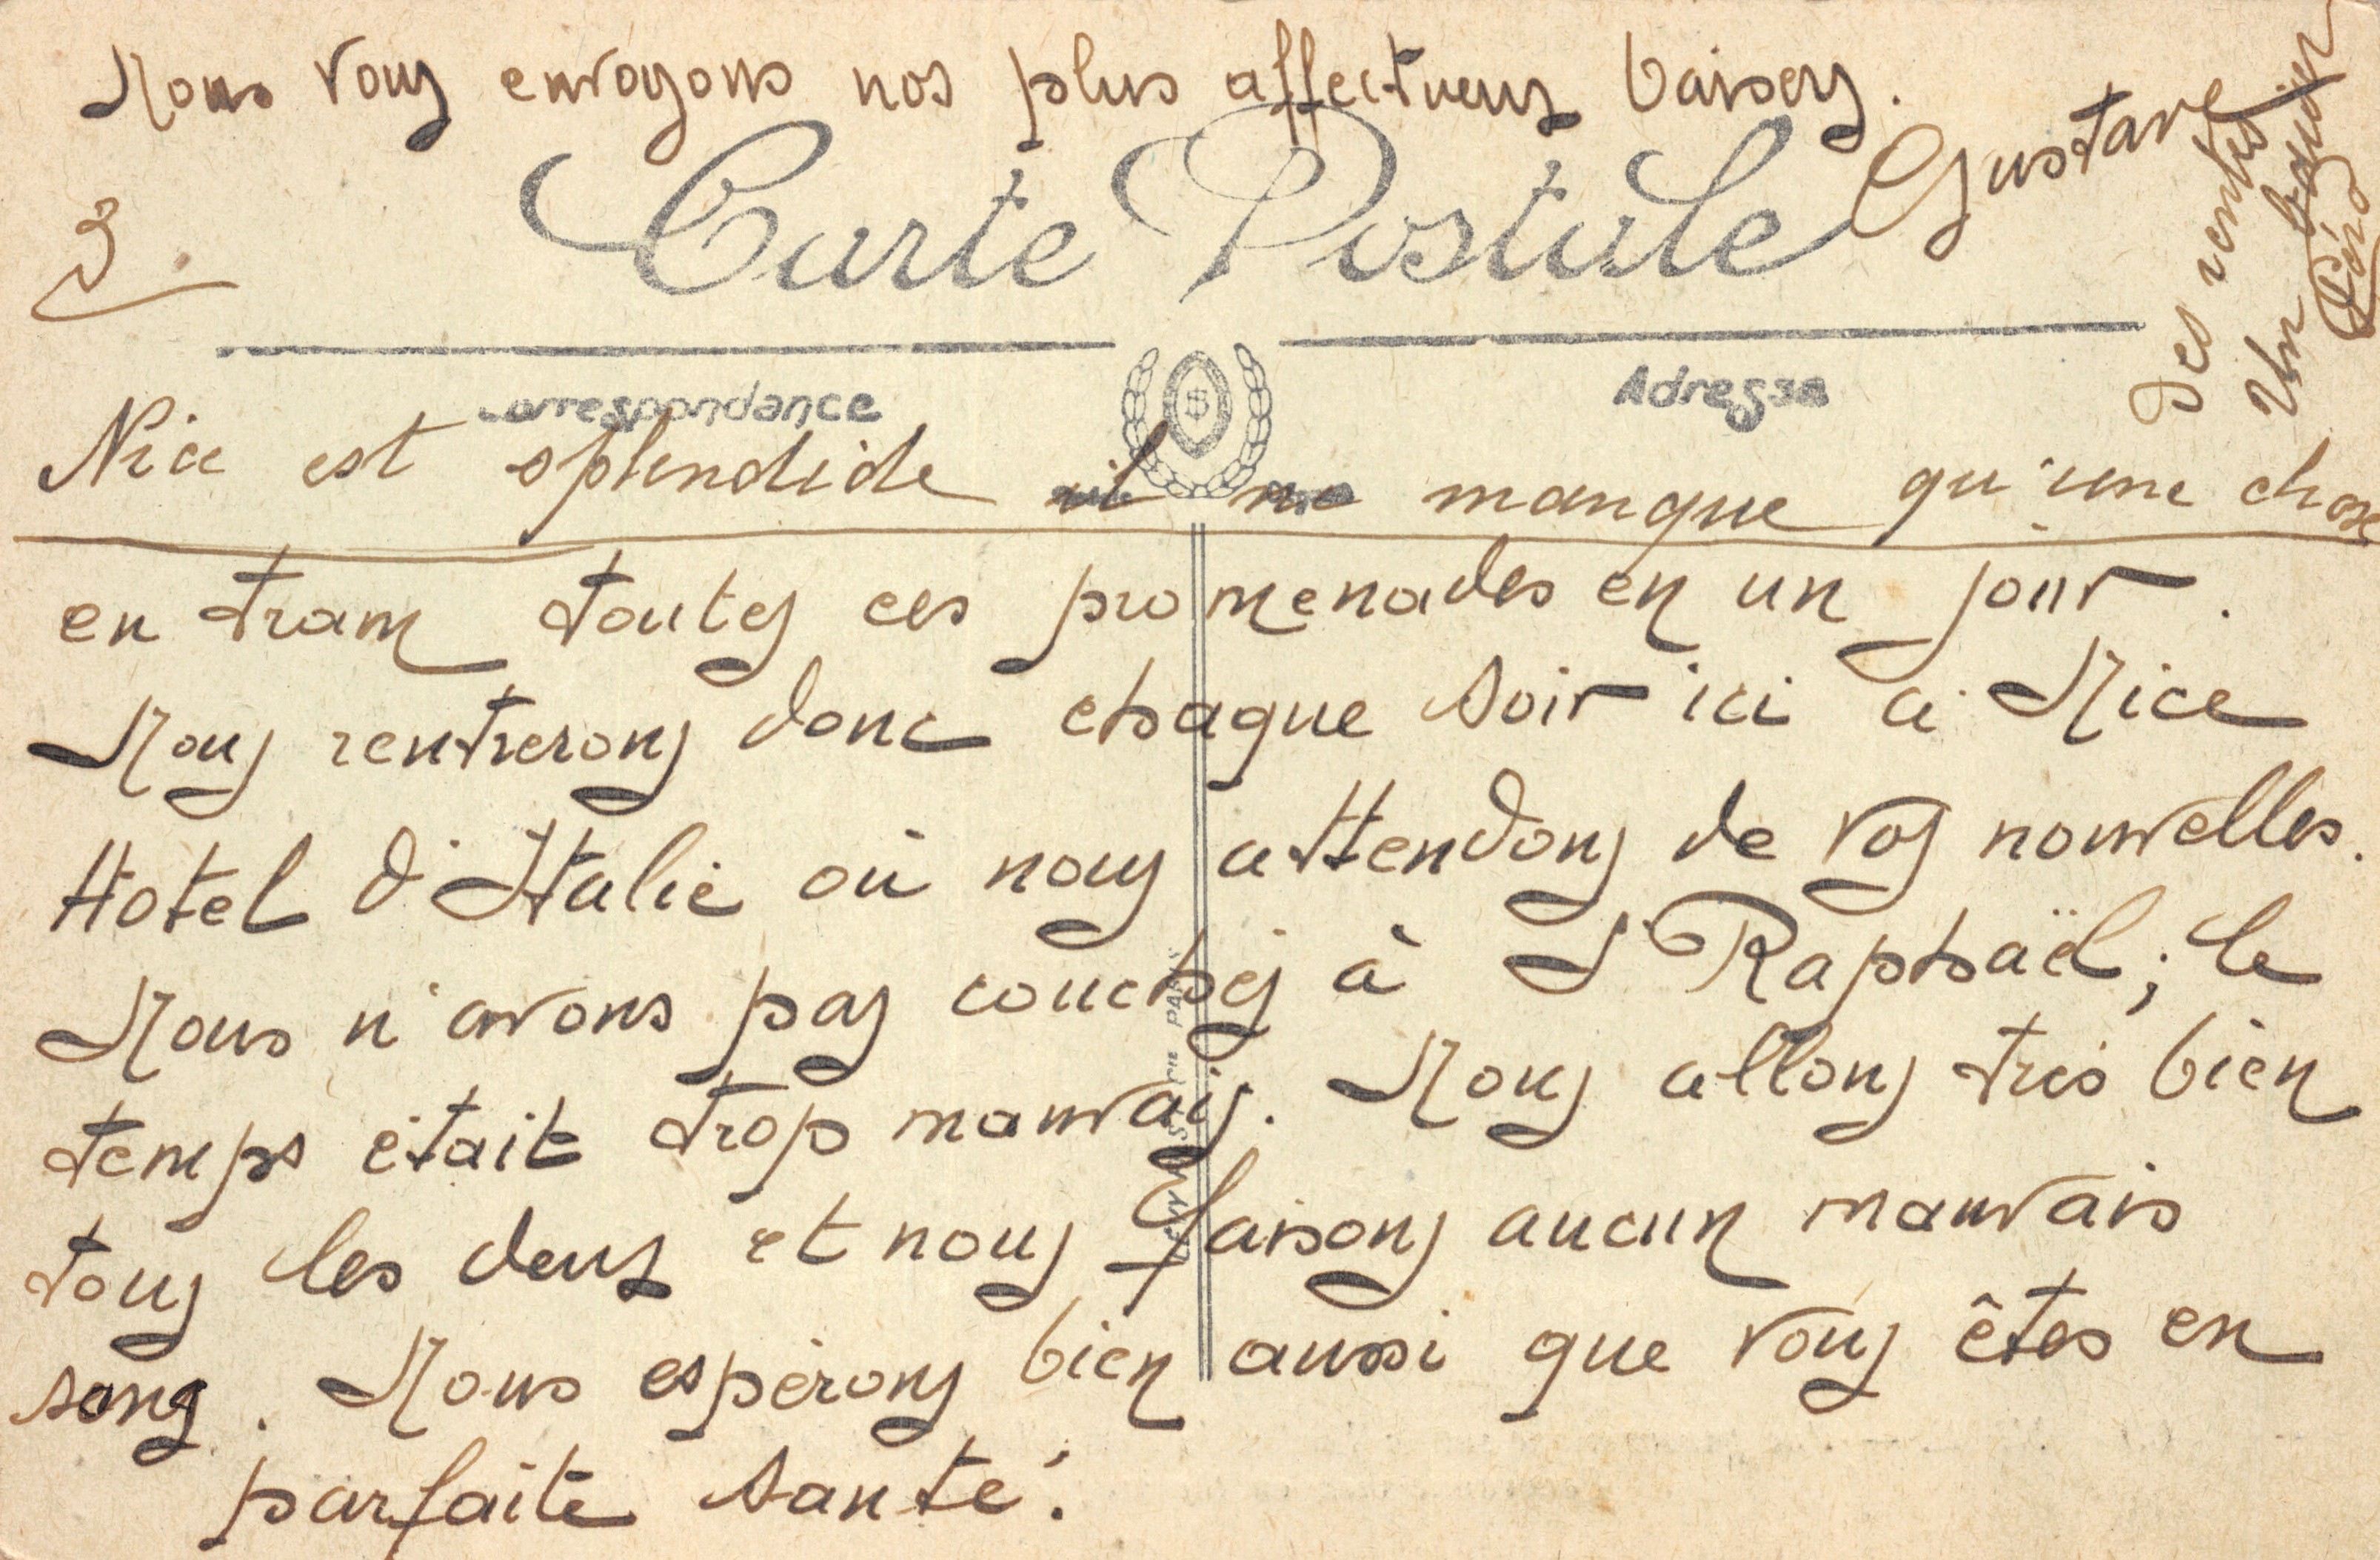 Nous vous envoyons nos plus affectueux baisers.
Gustave
3.
Carte Postale
Correspondance
Adresse
Nice est splendide il ne manque qu'une chose
Des rentes
Un baiser
en tram toutes ces promenades en un jour.
Nous rentrerons donc chaque soir ici à Nice
Hotel d'Italie où nous attendons de vos nouvelles.
Nous n'avons pas couchés à St Raphaël; le
temps était trop mauvais. Nous allons très bien
tous les deux et nous faisons aucun mauvais
sang. Nous espérons bien aussi que vous êtes en
parfaite santé.